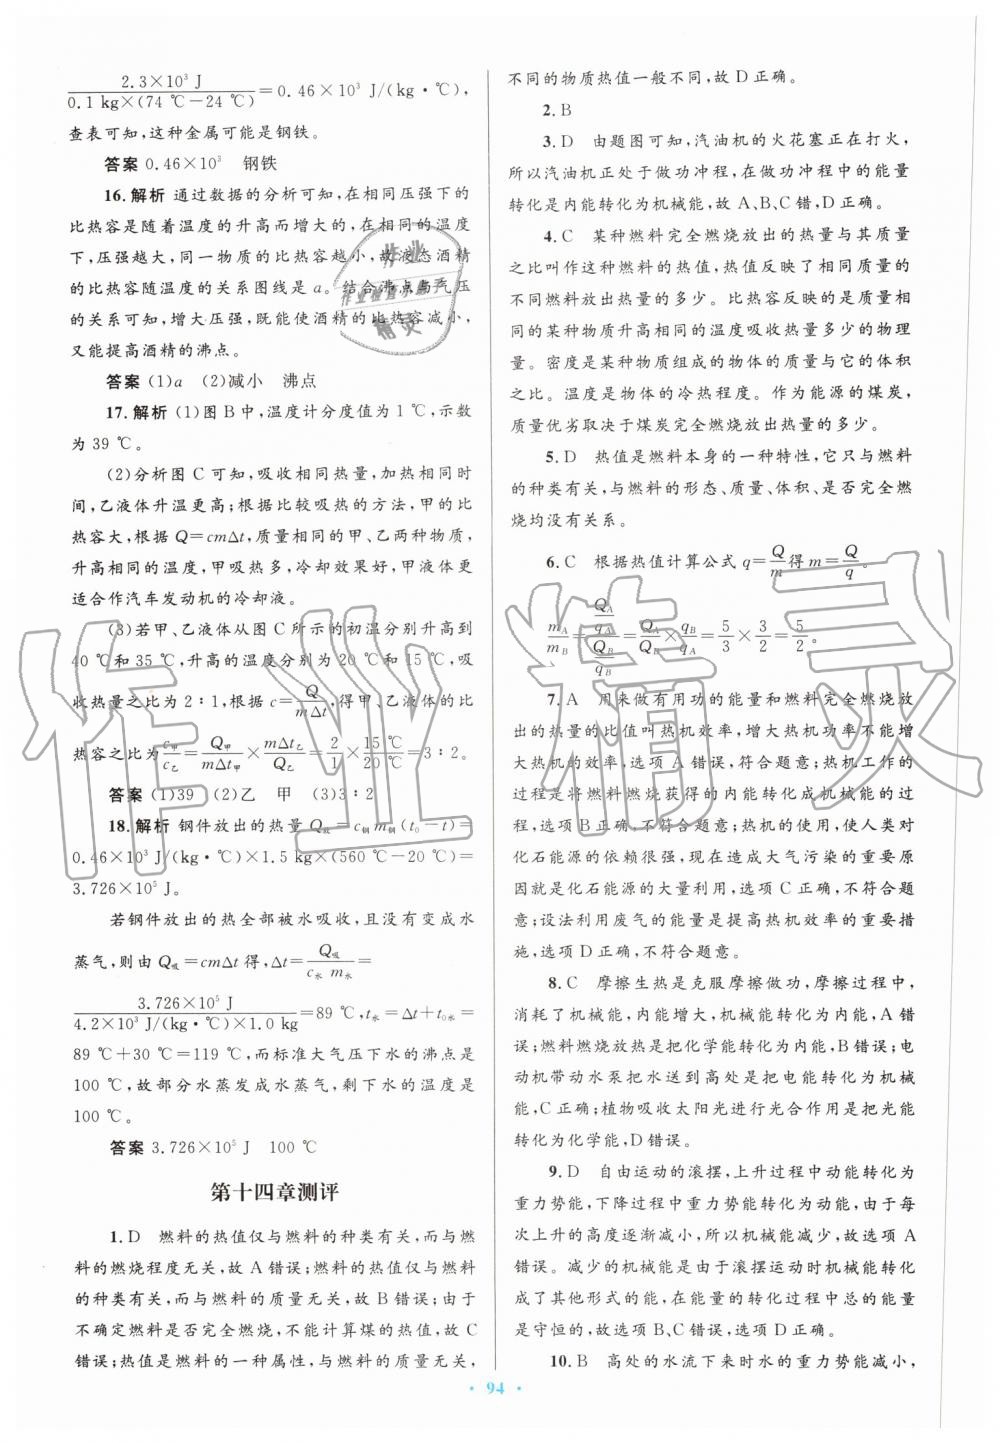 2.3×10³ J / 0.1 kg×(74 ℃-24 ℃) =0.46×10³ J/(kg·℃),
查表可知,这种金属可能是钢铁。
答案 0.46×10³ 钢铁
16.解析 通过数据的分析可知,在相同压强下的
比热容是随着温度的升高而增大的,在相同的温度
下,压强越大,同一物质的比热容越小,故液态酒精
的比热容随温度的关系图线是a。结合沸点与气压
的关系可知,增大压强,既能使酒精的比热容减小,
又能提高酒精的沸点。
答案 (1)a (2)减小 沸点
17.解析 (1)图B中,温度计分度值为1 ℃,示数
为39 ℃。
(2)分析图C可知,吸收相同热量,加热相同时
间,乙液体升温更高;根据比较吸热的方法,甲的比
热容大,根据Q=cmΔt,质量相同的甲、乙两种物质,
升高相同的温度,甲吸热多,冷却效果好,甲液体更
适合作汽车发动机的冷却液。
(3)若甲、乙液体从图C所示的初温分别升高到
40 ℃和35 ℃,升高的温度分别为20 ℃和15 ℃,吸
收热量之比为2∶1,根据c=Q/mΔt,得甲、乙液体的比
热容之比为c甲/c乙=Q甲/mΔt甲×mΔt乙/Q乙=2/1×15 ℃/20 ℃=3∶2。
答案 (1)39 (2)乙 甲 (3)3∶2
18.解析 钢件放出的热量Q放=c钢m钢(t₀-t)=
0.46×10³ J/(kg·℃)×1.5 kg×(560 ℃-20 ℃)=
3.726×10⁵ J。
若钢件放出的热全部被水吸收,且没有变成水
蒸气,则由Q吸=cmΔt得,Δt=Q吸/c水 m水=
3.726×10⁵ J / 4.2×10³ J/(kg·℃)×1.0 kg =89 ℃,t水=Δt+t0水=
89 ℃+30 ℃=119 ℃,而标准大气压下水的沸点是
100 ℃,故部分水蒸发成水蒸气,剩下水的温度是
100 ℃。
答案 3.726×10⁵ J 100 ℃
第十四章测评
1.D 燃料的热值仅与燃料的种类有关,而与燃
料的燃烧程度无关,故A错误;燃料的热值仅与燃料
的种类有关,而与燃料的质量无关,故B错误;由于
不确定燃料是否完全燃烧,不能计算煤的热值,故C
错误;热值是燃料的一种属性,与燃料的质量无关,
不同的物质热值一般不同,故D正确。
2.B
3.D 由题图可知,汽油机的火花塞正在打火,
所以汽油机正处于做功冲程,在做功冲程中的能量
转化是内能转化为机械能,故A、B、C错,D正确。
4.C 某种燃料完全燃烧放出的热量与其质量
之比叫作这种燃料的热值,热值反映了相同质量的
不同燃料放出热量的多少。比热容反映的是质量相
同的某种物质升高相同的温度吸收热量多少的物理
量。密度是某种物质组成的物体的质量与它的体积
之比。温度是物体的冷热程度。作为能源的煤炭,
质量优劣取决于煤炭完全燃烧放出的热量的多少。
5.D 热值是燃料本身的一种特性,它只与燃料
的种类有关,与燃料的形态、质量、体积、是否完全燃
烧均没有关系。
6.C 根据热值计算公式q=Q/m得m=Q/q。
mA/mB=(QA/qA)/(QB/qB)=QA/QB×qB/qA=5/3×3/2=5/2。
7.A 用来做有用功的能量和燃料完全燃烧放
出的热量的比值叫热机效率,增大热机功率不能增
大热机的效率,选项A错误,符合题意;热机工作的
过程是将燃料燃烧获得的内能转化成机械能的过
程,选项B正确,不符合题意;热机的使用,使人类对
化石能源的依赖很强,现在造成大气污染的重要原
因就是化石能源的大量利用,选项C正确,不符合题
意;设法利用废气的能量是提高热机效率的重要措
施,选项D正确,不符合题意。
8.C 摩擦生热是克服摩擦做功,摩擦过程中,
消耗了机械能,内能增大,机械能转化为内能,A错
误;燃料燃烧放热是把化学能转化为内能,B错误;电
动机带动水泵把水送到高处是把电能转化为机械
能,C正确;植物吸收太阳光进行光合作用是把光能
转化为化学能,D错误。
9.D 自由运动的滚摆,上升过程中动能转化为
重力势能,下降过程中重力势能转化为动能,由于每
次上升的高度逐渐减小,所以机械能减小,故选项A
错误。减少的机械能是由于滚摆运动时机械能转化
成了其他形式的能,在能量的转化过程中总的能量
是守恒的,故选项B、C错误,选项D正确。
10.B 高处的水流下来时水的重力势能减小,
· 94 ·
作业精灵
作业
作业检查小助手
精灵